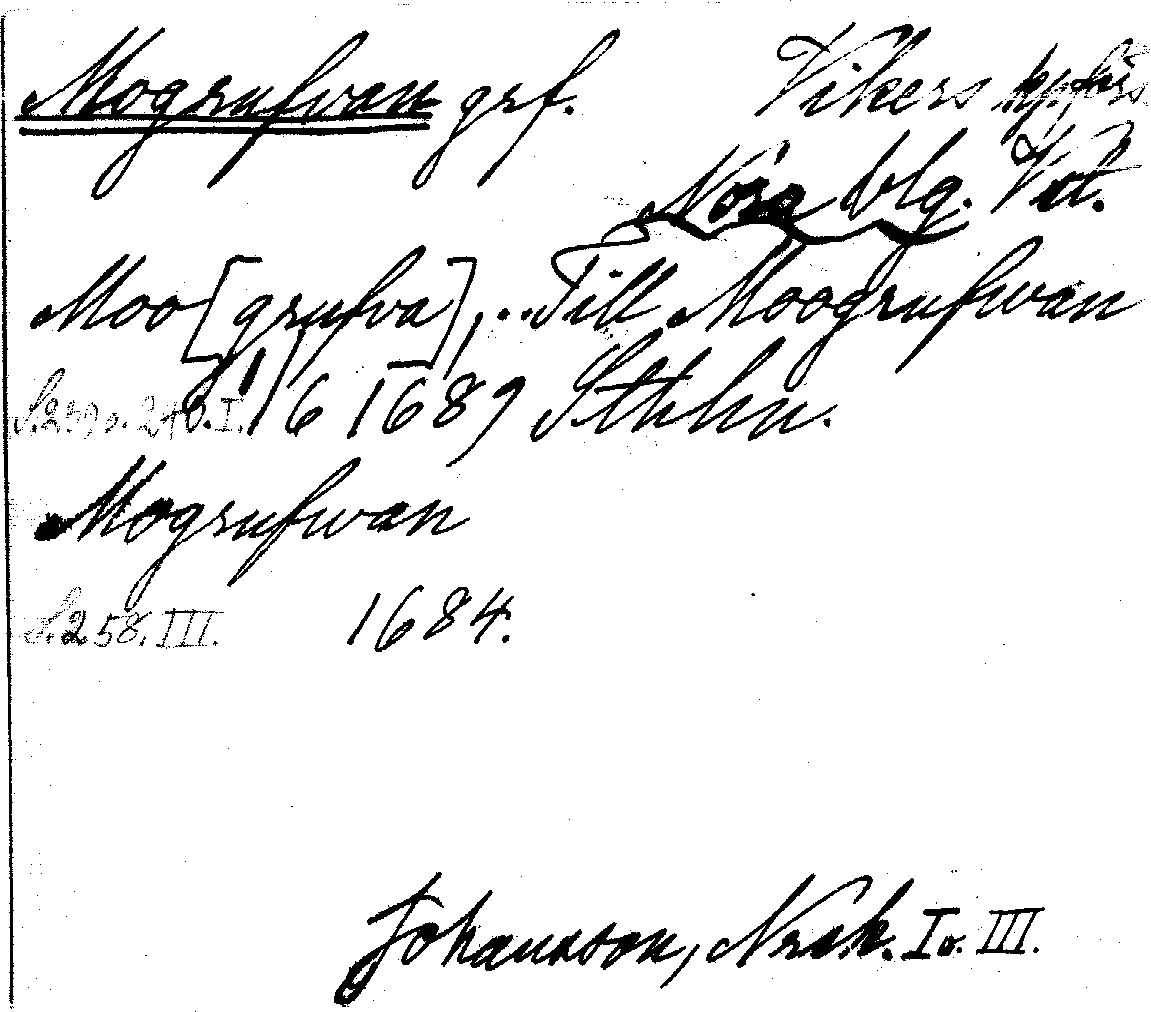 Mogrufvan grf. Vikers kpförs
Nora blg. Vstl.
Moo [grufva], .. Till Moogrufwan
S. 239 o. 240. I. 11/6 1689 Sthlm.
Mogrufwan
S. 258. III. 1684.
Johansson, Nrsk. I o. III.